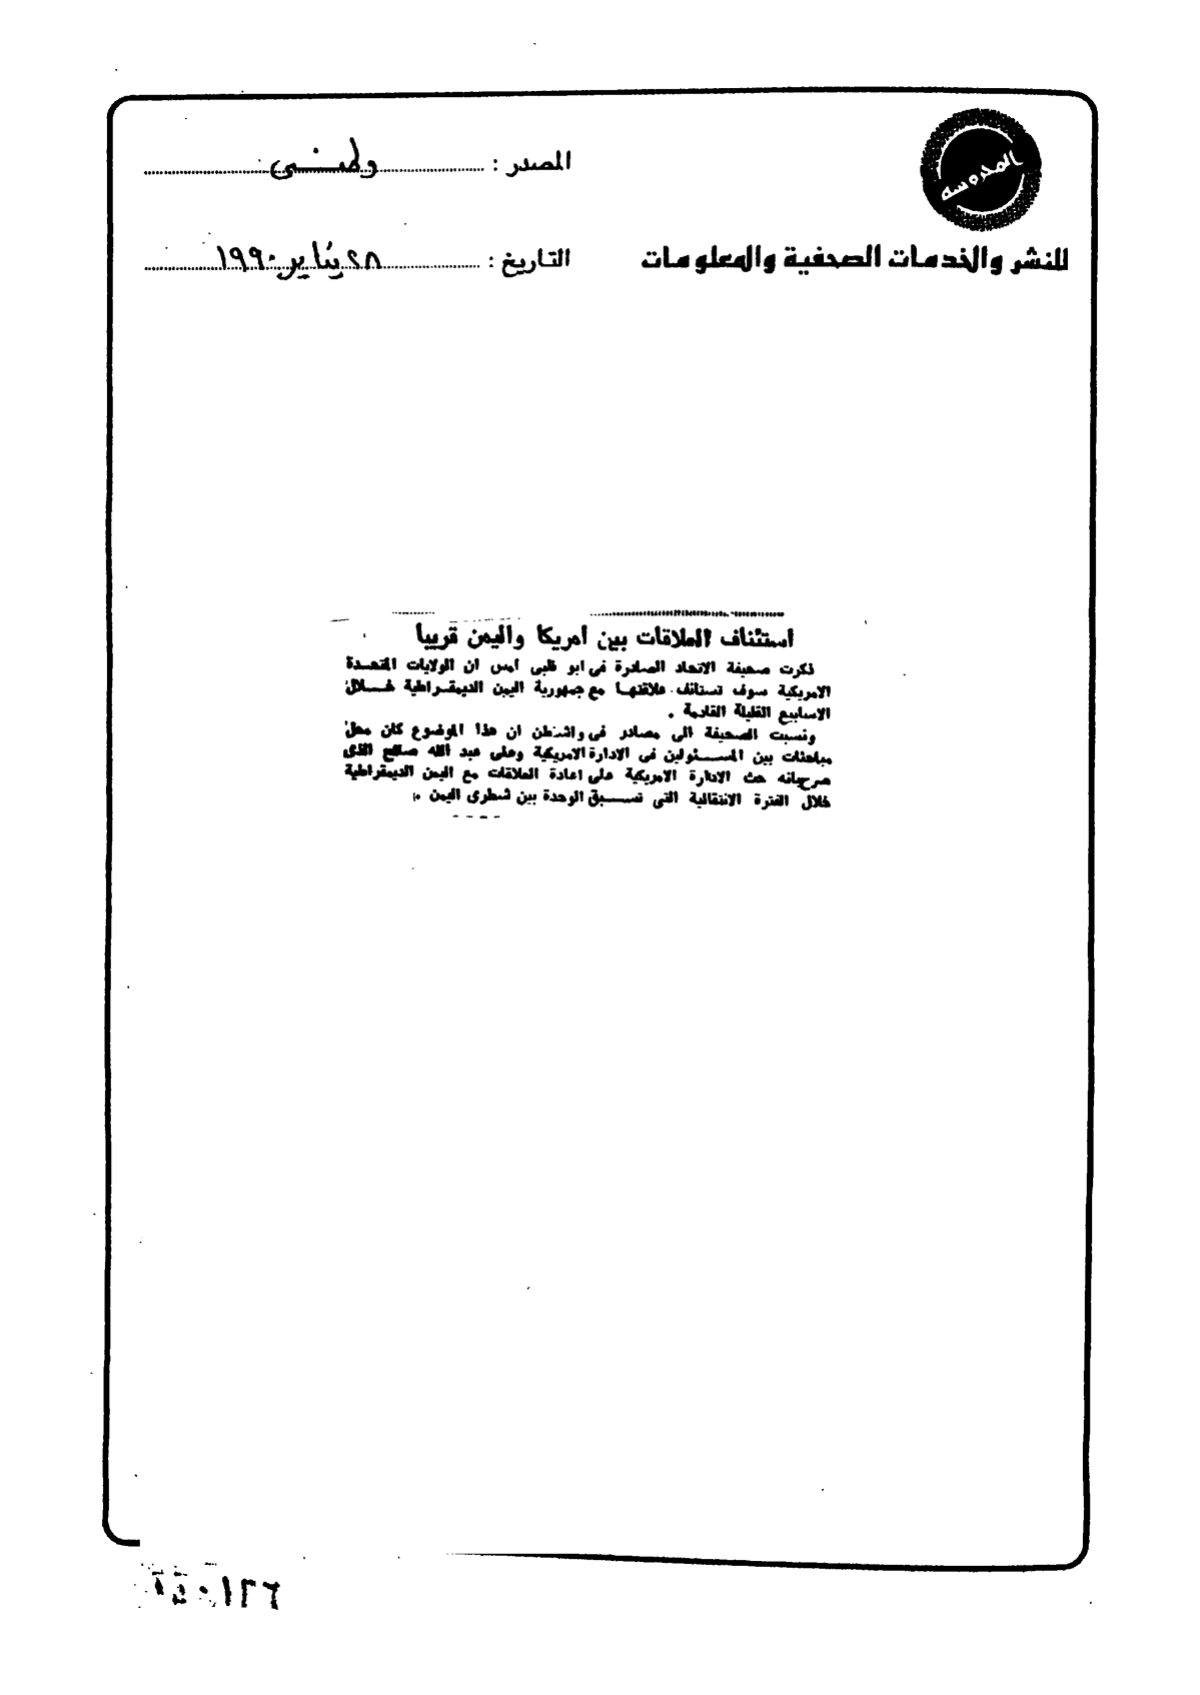 المحروسه
المصدر : وطنى
للنشر والخدمات الصحفية والمعلومات
التاريخ : ٢٨ يناير ١٩٩٠
استئناف العلاقات بين امريكا واليمن قريبا
ذكرت صحيفة الاتحاد الصادرة فى ابو ظبى امس ان الولايات المتحدة
الامريكية سوف تستانف علاقتها مع جمهورية اليمن الديمقراطية خلال
الاسابيع القليلة القادمة .
ونسبت الصحيفة الى مصادر فى واشنطن ان هذا الموضوع كان محل
مباحثات بين المسئولين فى الادارة الامريكية وعلى عبد الله صالح الذى
صرح بانه حث الادارة الامريكية على اعادة العلاقات مع اليمن الديمقراطية
خلال الفترة الانتقالية التى تسبق الوحدة بين شطرى اليمن .